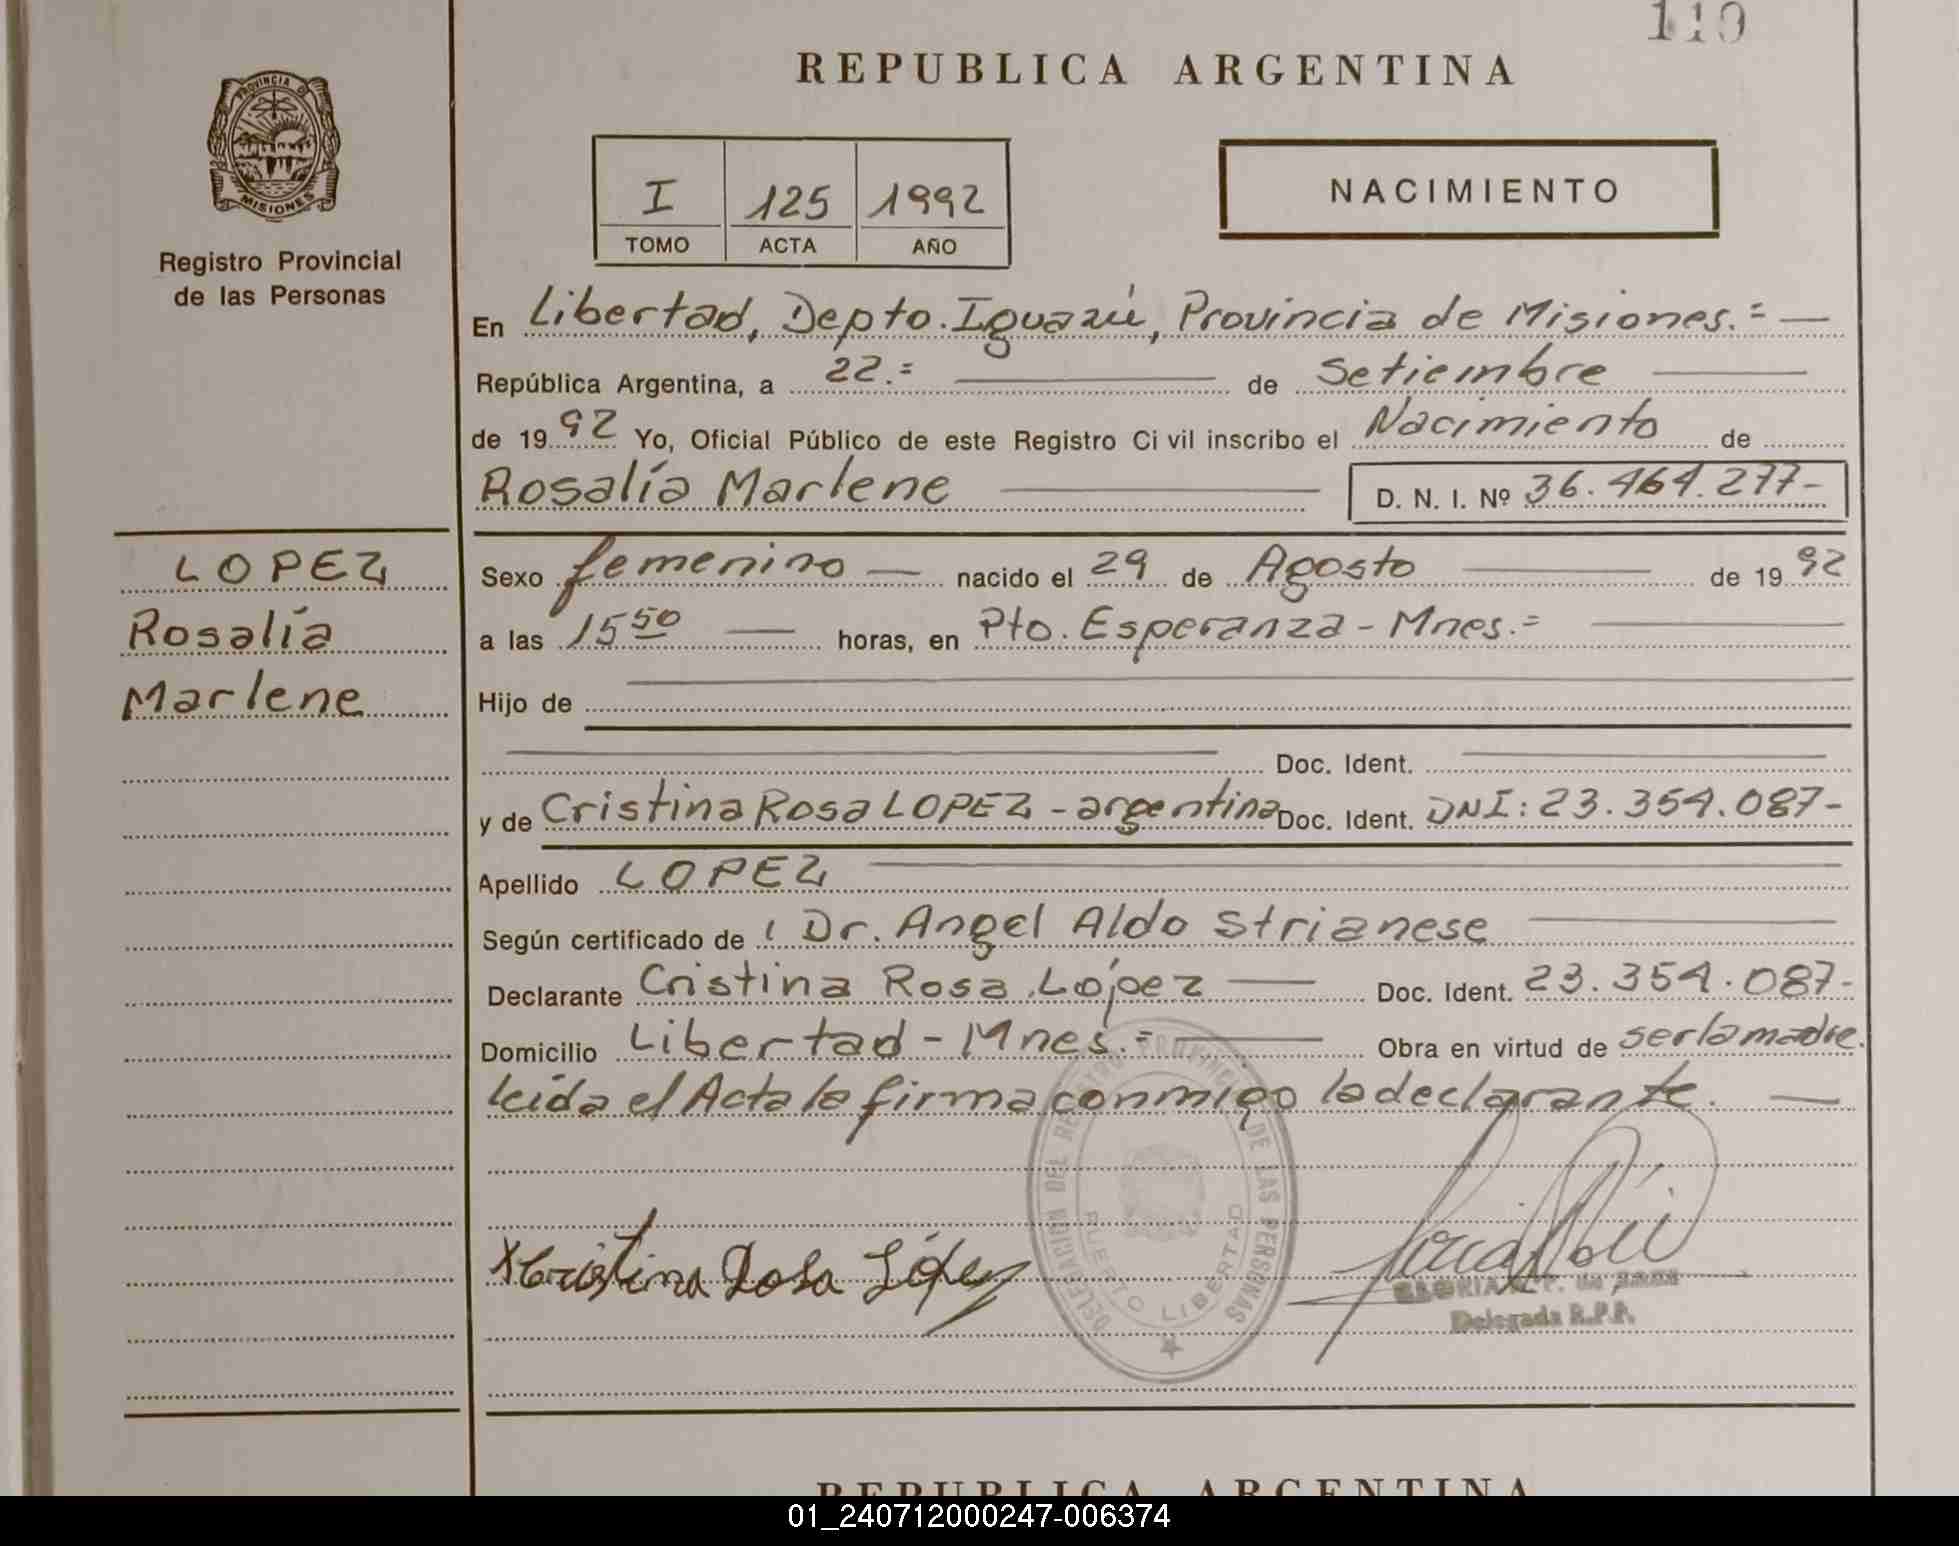 110
REPUBLICA ARGENTINA
PROVINCIA D
MISIONES
Registro Provincial
de las Personas
I 125 1992
TOMO ACTA AÑO
NACIMIENTO
En Libertad, Depto. Iguazú, Provincia de Misiones.=
República Argentina, a 22.= de Setiembre
de 1992 Yo, Oficial Público de este Registro Civil inscribo el Nacimiento de
Rosalía Marlene D. N. I. Nº 36.464.277-
LOPEZ
Rosalía
Marlene
Sexo femenino nacido el 29 de Agosto de 1992
a las 15 50 horas, en Pto. Esperanza - Mnes.=
Hijo de
Doc. Ident.
y de Cristina Rosa LOPEZ - argentina Doc. Ident. DNI: 23.354.087-
Apellido LOPEZ
Según certificado de Dr. Angel Aldo Strianese
Declarante Cristina Rosa López Doc. Ident. 23.354.087-
Domicilio Libertad - Mnes.= Obra en virtud de ser la madre.
leída el Acta la firma conmigo la declarante.
DELEGACION DEL REGISTRO PROVINCIAL DE LAS PERSONAS
PUERTO LIBERTAD
Cristina Rosa López
GLORIA
Delegada R.P.P.
REPUBLICA ARGENTINA
01_240712000247-006374